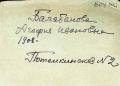 Балабанова
Агафия Ивановна
1908
Потемкинская №2